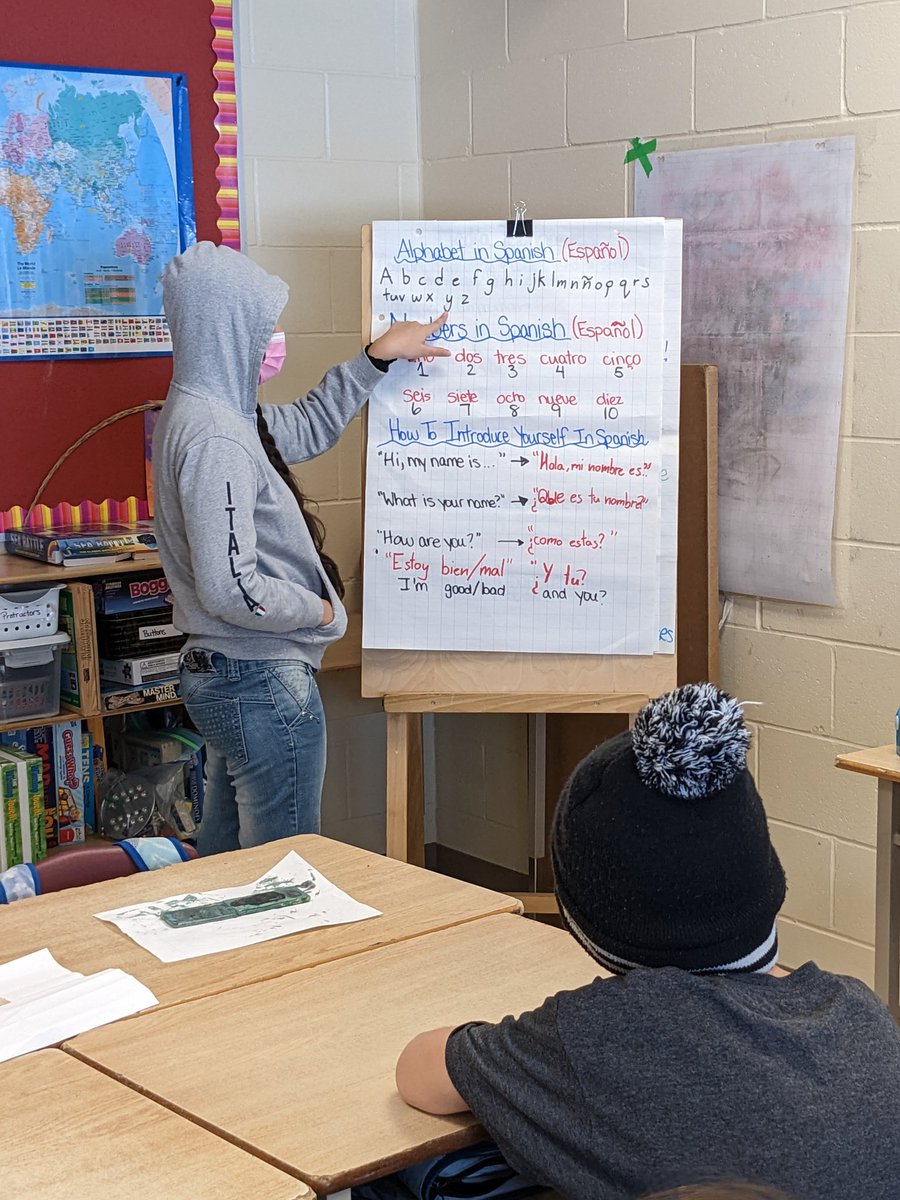 Alphabet in Spanish (Español)
A b c d e f g h i j k l m n ñ o p q r s
t u v w x y z
Numbers in Spanish (Español)
uno dos tres cuatro cinço
1 2 3 4 5
seis siete ocho nueve diez
6 7 8 9 10
How To Introduce Yourself In Spanish
"Hi, my name is..." → "Hola, mi nombre es."
"What is your name?" → "¿Que es tu nombre?"
"How are you?" → "¿como estas?"
"Estoy bien/mal" "¿Y tu?
I'm good/bad and you?
ITALIA
The World
Le Monde
Protractors
BOGG
Buttons
MASTER MIND
GUESS WHO?